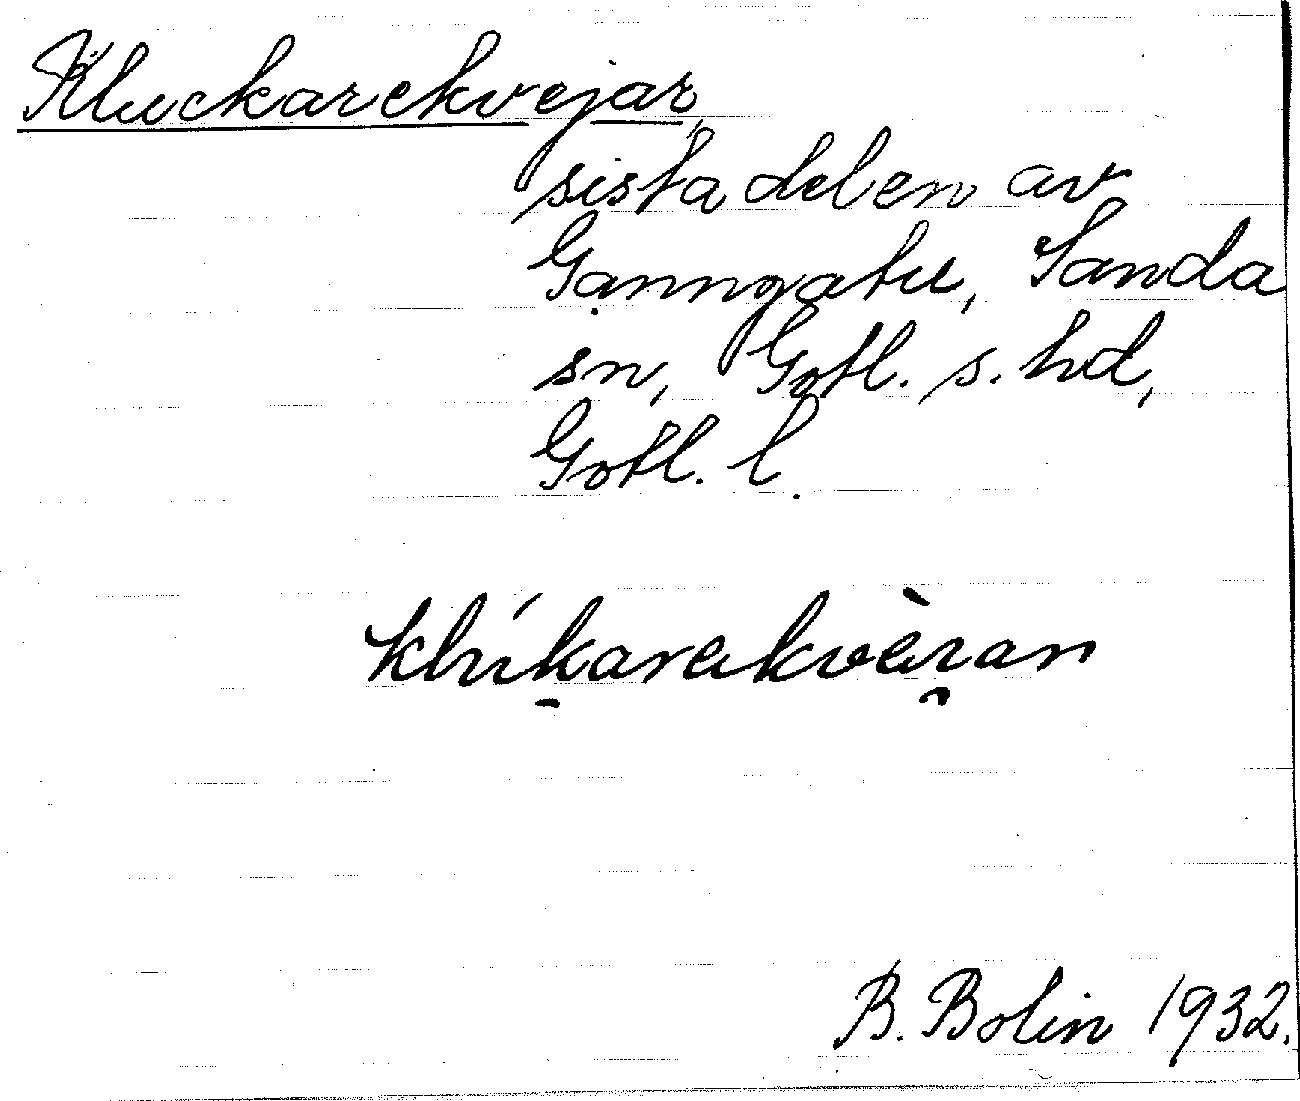 Kluckarekvejar,
sista delen av
Ganngatu, Sanda
sn, Gotl. s. hd,
Gotl. l.
B. Bolin 1932.